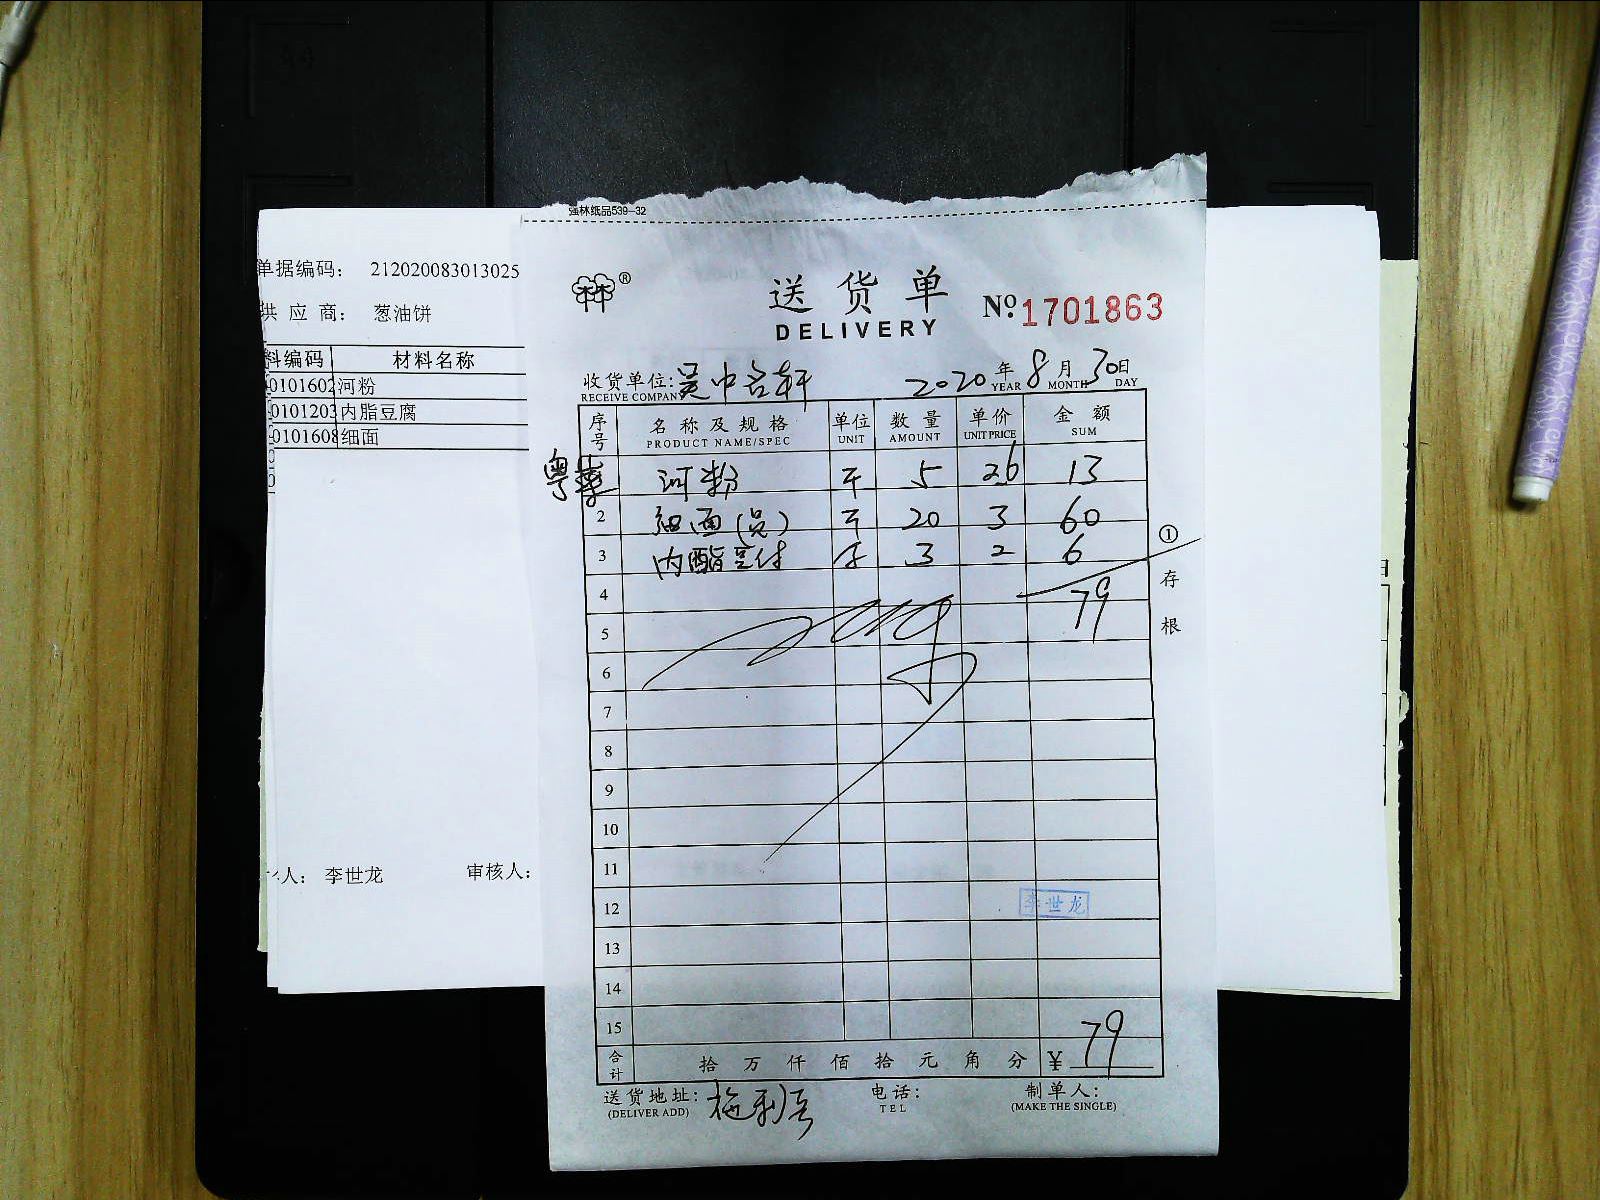 强林纸品539-32
单据编码： 212020083013025
供 应 商： 葱油饼
料编码 材料名称
0101602 河粉
0101203 内脂豆腐
0101608 细面
人： 李世龙 审核人：
林 ®
送 货 单
DELIVERY
No. 1701863
收货单位: 吴中名轩 2020 年 8 月 30 日
RECEIVE COMPAN YEAR MONTH DAY
序号 名 称 及 规 格 单位 数 量 单价 金 额
PRODUCT NAME/SPEC UNIT AMOUNT UNIT PRICE SUM
粤华 河粉 斤 5 2.6 13
2 细面(炒) 斤 20 3 60
3 内酯豆付 3 2 6
4 79
5
6
7
8
9
10
11
12 李世龙
13
14
15
合计 拾 万 仟 佰 拾 元 角 分 ¥ 79
① 存根
送货地址: 电话: 制单人:
(DELIVER ADD) TEL (MAKE THE SINGLE)